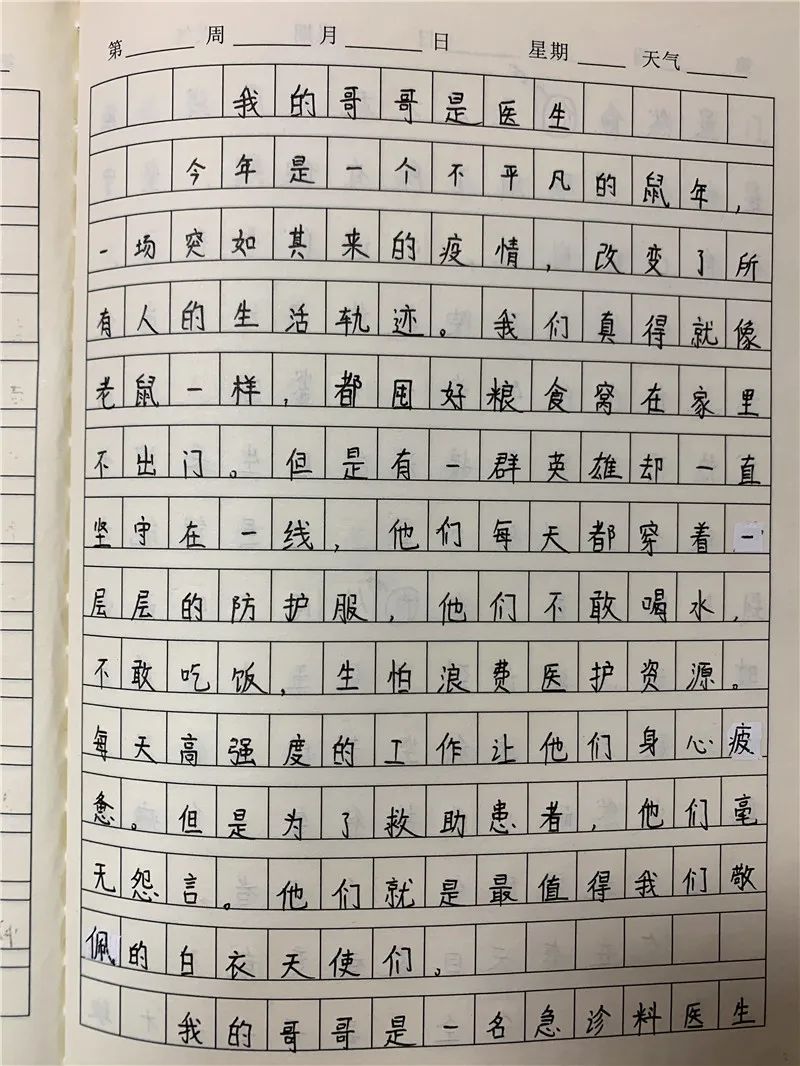 第 周 月 日 星期 天气
我的哥哥是医生
今年是一个不平凡的鼠年，
一场突如其来的疫情，改变了所
有人的生活轨迹。我们真得就像
老鼠一样，都囤好粮食窝在家里
不出门。但是有一群英雄却一直
坚守在一线，他们每天都穿着一
层层的防护服，他们不敢喝水，
不敢吃饭，生怕浪费医护资源。
每天高强度的工作让他们身心疲
惫。但是为了救助患者，他们毫
无怨言。他们就是最值得我们敬
佩的白衣天使们。
我的哥哥是一名急诊料医生